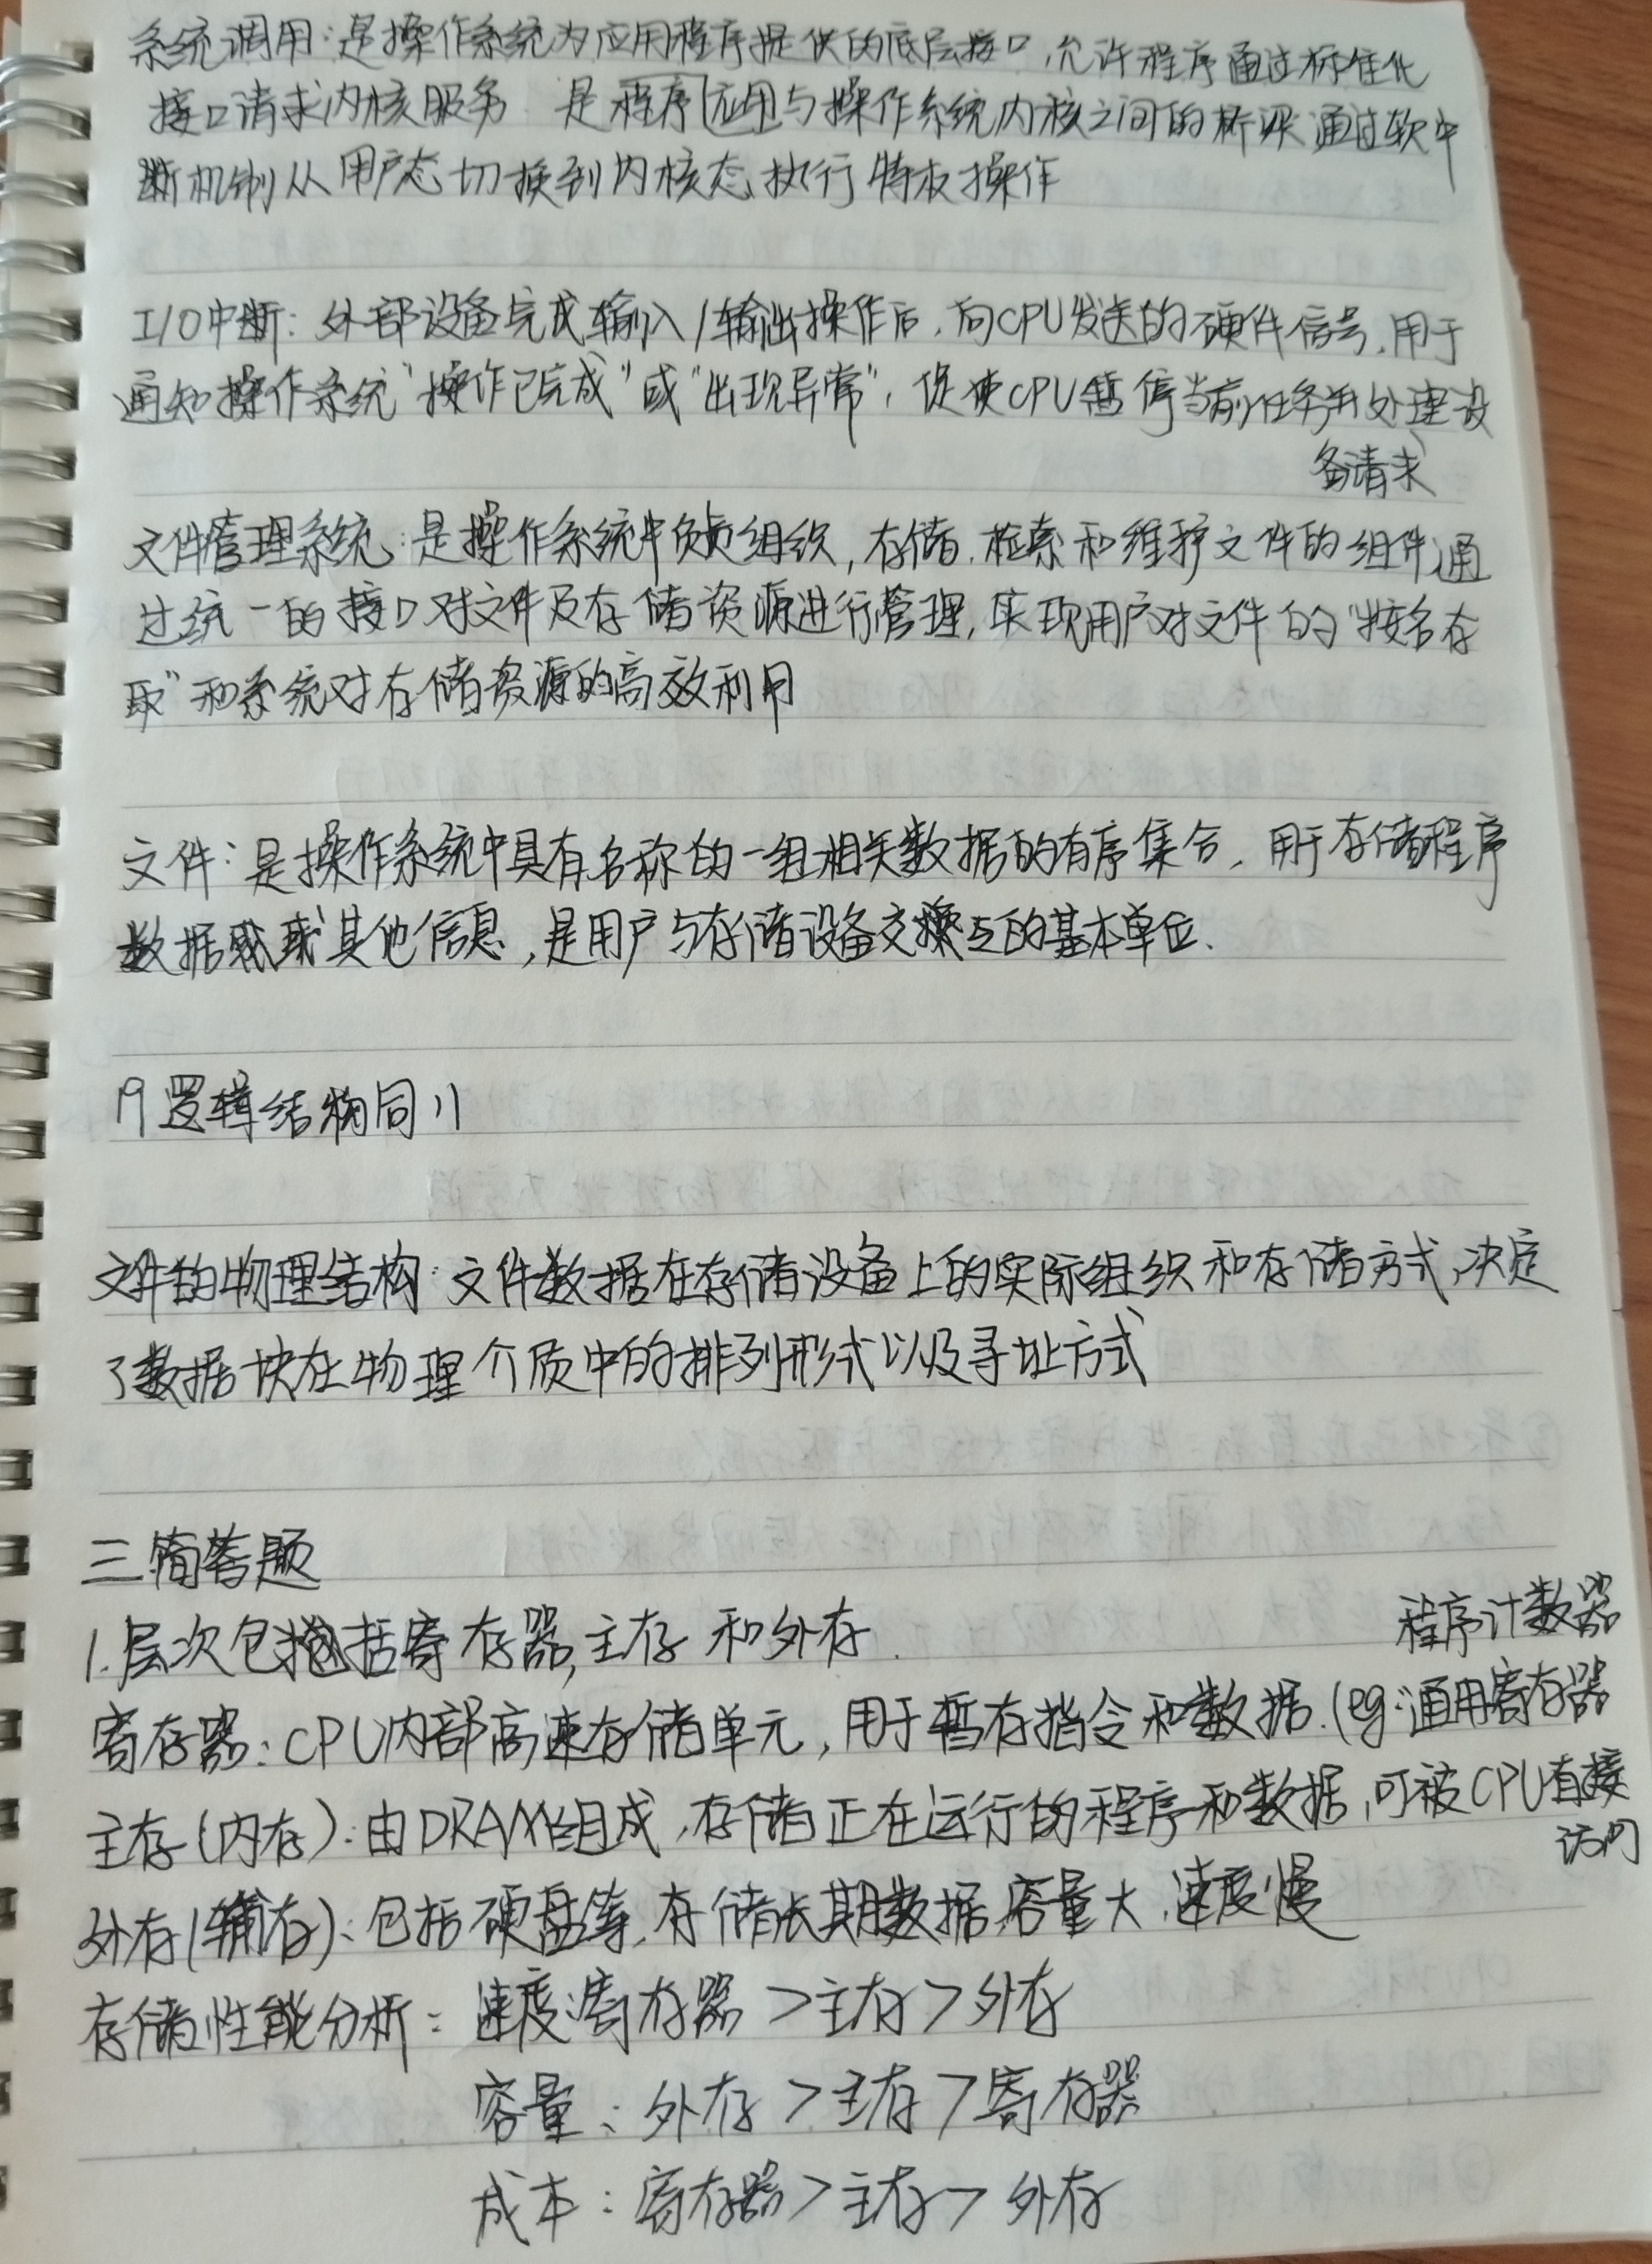 系统调用：是操作系统为应用程序提供的底层接口，允许程序通过标准化
接口请求内核服务 是程序应用与操作系统内核之间的桥梁 通过软中
断机制从用户态切换到内核态执行特权操作
I/O中断：外部设备完成输入/输出操作后，向CPU发送的硬件信号，用于
通知操作系统"操作已完成"或"出现异常"，促使CPU暂停当前任务并处理设
备请求
文件管理系统：是操作系统中负责组织，存储，检索和维护文件的组件通
过统一的接口对文件及存储资源进行管理，实现用户对文件的"按名存
取"和系统对存储资源的高效利用
文件：是操作系统中具有名称的一组相关数据的有序集合，用于存储程序
数据或其他信息，是用户与存储设备交互的基本单位、
19 逻辑结构同11
文件的物理结构：文件数据在存储设备上的实际组织和存储方式，决定
了数据块在物理介质中的排列形式以及寻址方式
三 简答题
1.层次包括寄存器，主存和外存.
程序计数器
寄存器：CPU内部高速存储单元，用于暂存指令和数据.(eg:通用寄存器
主存(内存)：由DRAM组成，存储正在运行的程序和数据，可被CPU直接
访问
外存(辅存)：包括硬盘等，存储长期数据，容量大，速度慢
存储性能分析：速度：寄存器>主存>外存
容量：外存>主存>寄存器
成本：寄存器>主存>外存